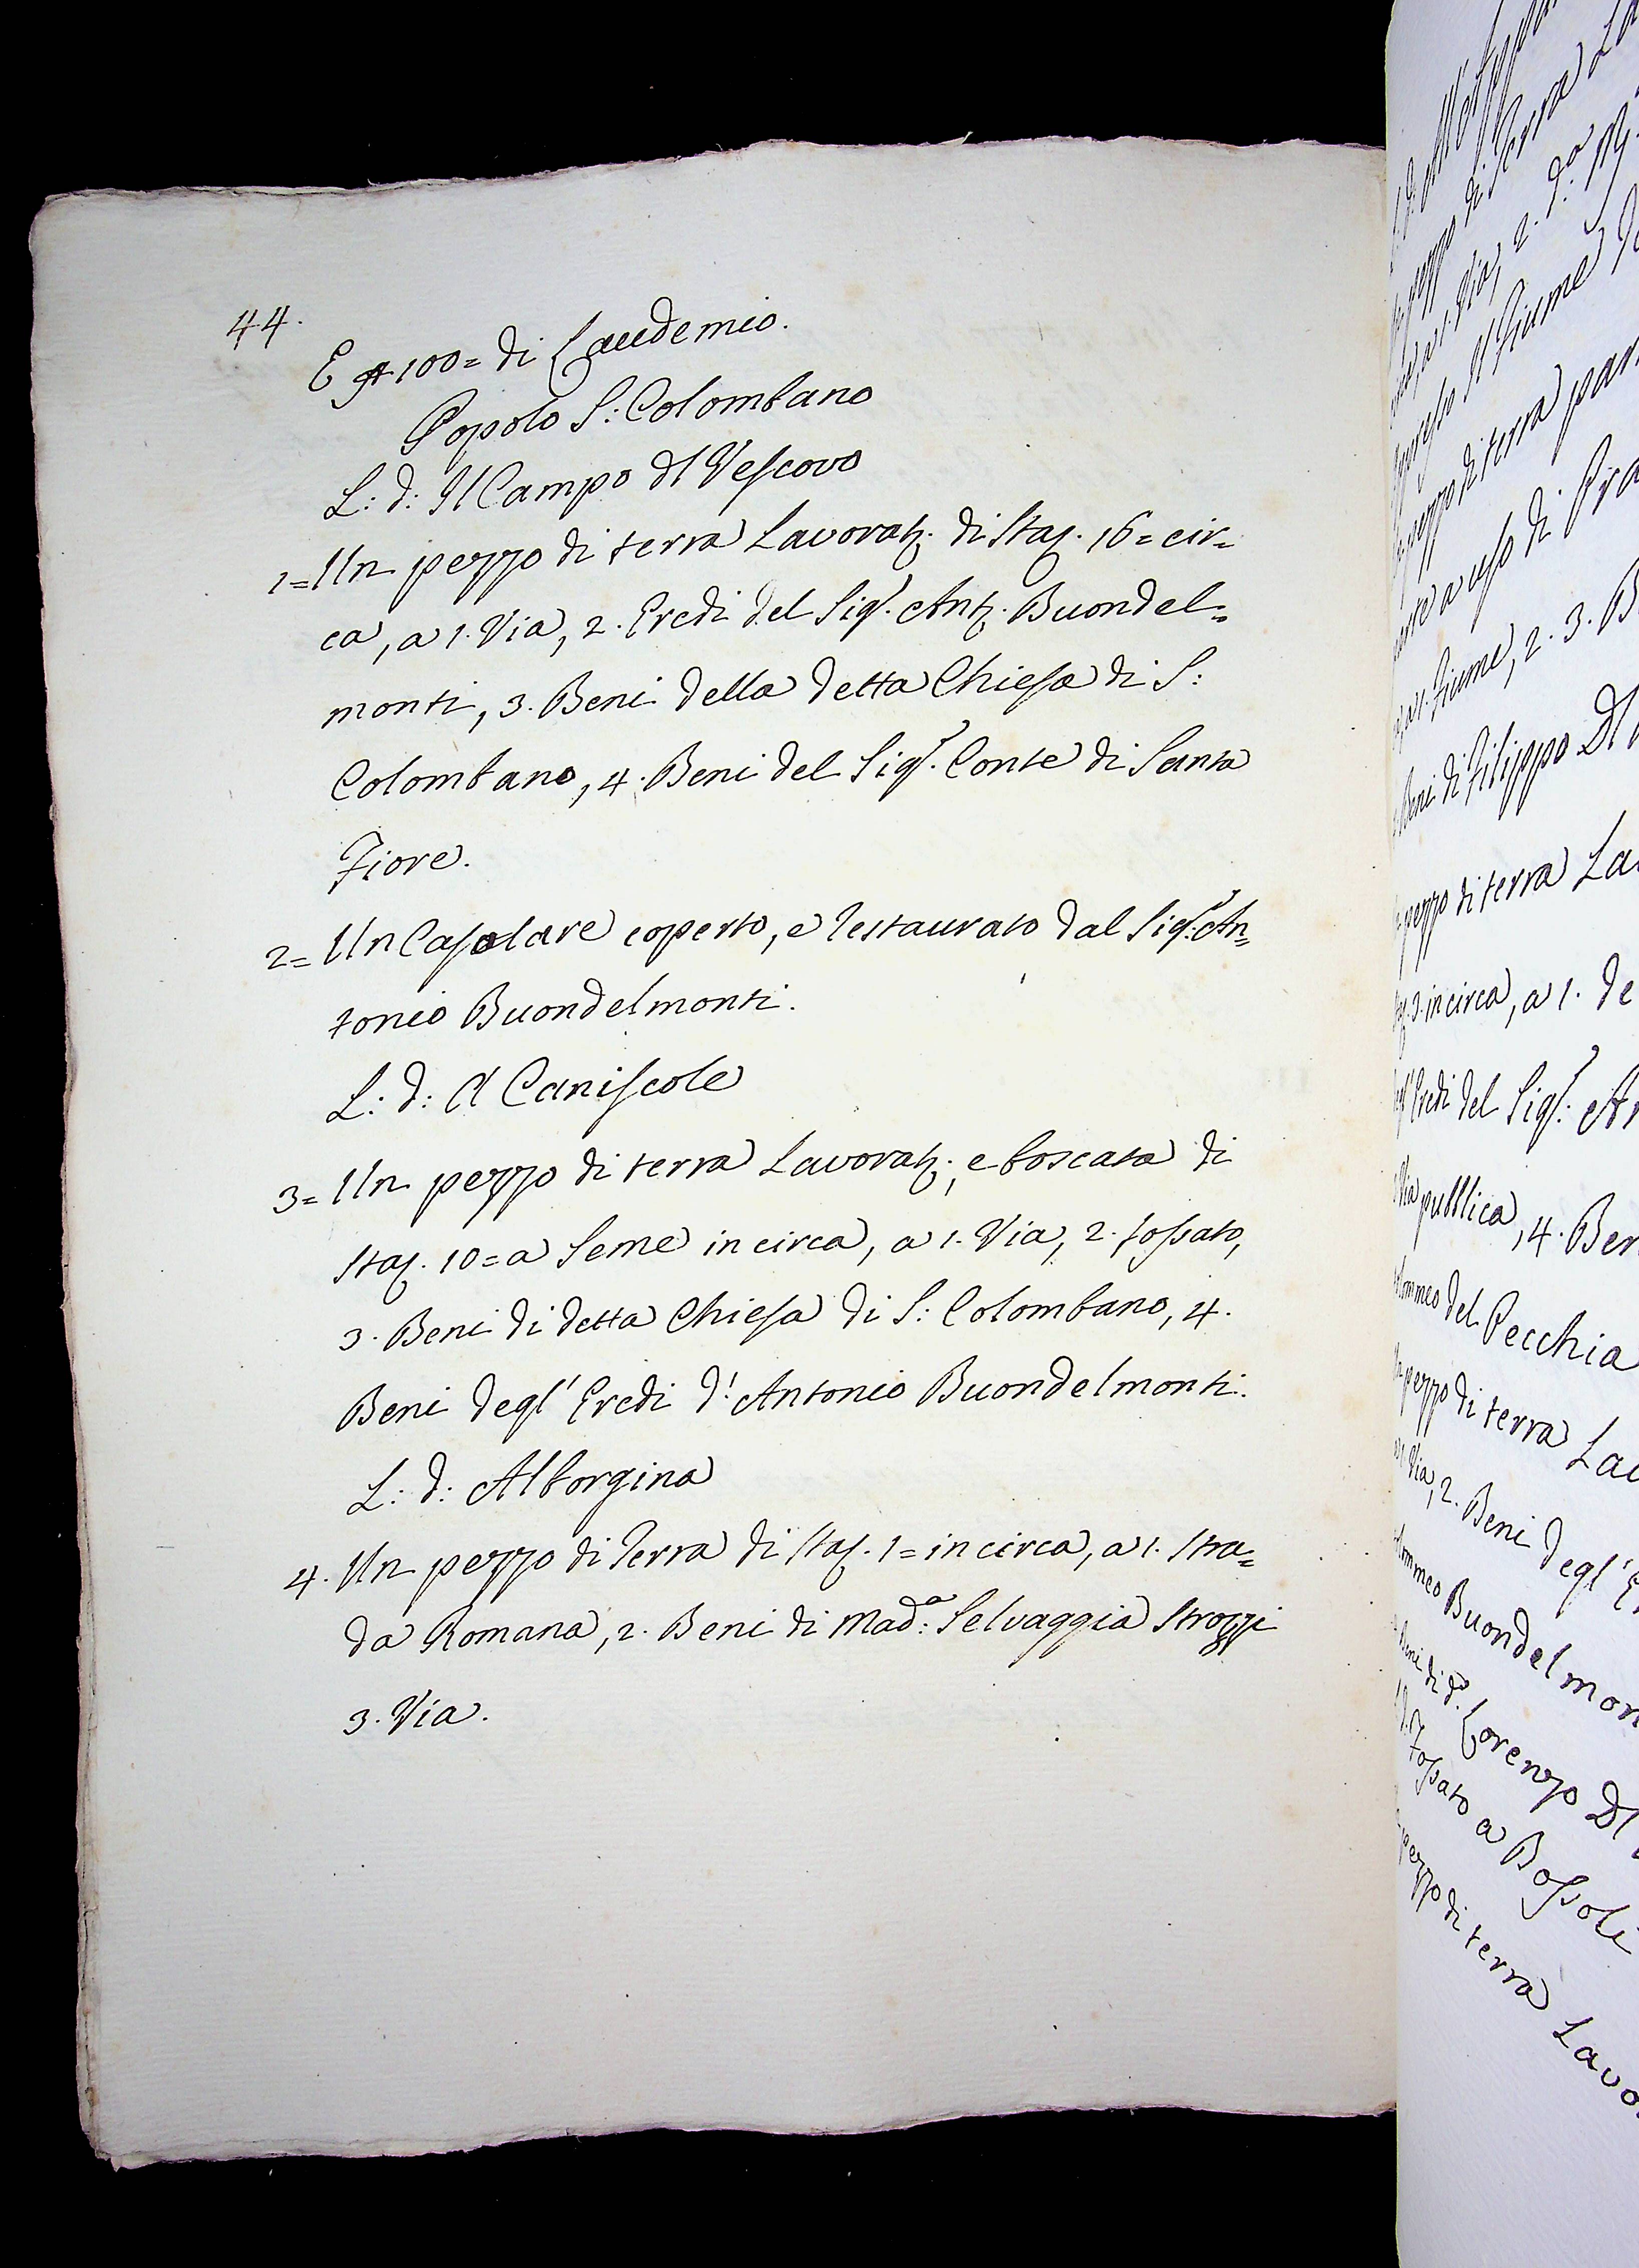 44.
E 100= di Laudemio.
Popolo S: Colombano
L: d: Il Campo dl Vescovo
1= Un pezzo di terra Lavorat. di Staj. 16= cir=
ca, a 1. Via, 2. Eredi del Sig. Ant. Buondel=
monti, 3. Beni della detta Chiesa di S:
Colombano, 4. Beni del Sig. Conte di Santa
Fiore.
2= Un Casolare coperto, e restaurato dal Sig: An=
tonio Buondelmonti.
L: d: A Caniscole
3= Un pezzo di terra Lavorat. e boscata di
Staj. 10= a Seme in circa, a 1. Via, 2. fossato,
3. Beni di detta Chiesa di S: Colombano, 4.
Beni degl' Eredi d' Antonio Buondelmonti.
L: d: Alborgina
4. Un pezzo di Terra di Staj. 1= in circa, a 1. Stra=
da Romana, 2. Beni di Mad:a Selvaggia Strozzi
3. Via.
pezzo di Terra La
a 1. Via, 2. d.a
appresso il Fiume
pezzo di terra par
a uso di Pra
a 1. Fiume, 2. 3. B
Beni di Filippo Dl
pezzo di terra La
3. in circa, a 1. de
Eredi del Sig: An
Via pubblica, 4. Ben
del Pecchia
pezzo di terra Lav
Via, 2. Beni degl' E
Buondelmon
Beni di d. Lorenzo Dl
Fossato a Bossoli
pezzo di terra Lavo